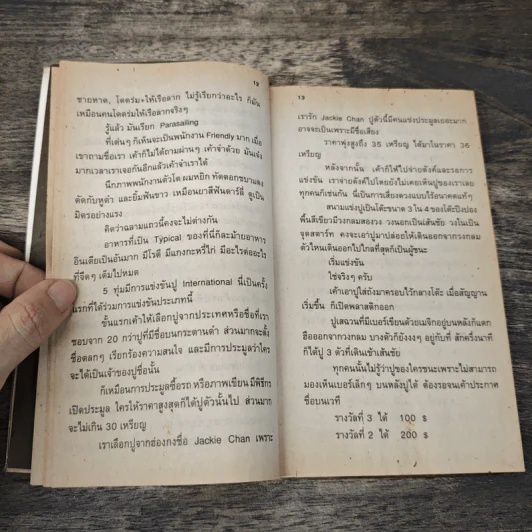 12
ชายหาด, โดดร่ม+ให้เรือลาก ไม่รู้เรียกว่าอะไร ก็มัน
เหมือนคนโดดร่มให้เรือลากจริงๆ
รู้แล้ว มันเรียก Parasailing
ที่เด่นๆ ก็เห็นจะเป็นพนักงาน Friendly มาก เมื่อ
เขาถามชื่อเรา เค้าก็ไม่ได้ถามผ่านๆ เค้าจำด้วย มันเจ๋ง
มากเวลาเราเจอกันอีกแล้วเค้าจำเราได้
นึกภาพพนักงานตัวโต ผมหยิก ทัดดอกชบาแดง
ตัดกับหูดำ และยิ้มฟันขาว เหมือนยาสีฟันดาร์ลี่ ดูเป็น
มิตรอย่างแรง
คิดว่าฉลามแถวนี้คงจะไม่ต่างกัน
อาหารที่เป็น Typical ของที่นี่ก็ละม้ายอาหาร
อินเดียเป็นอันมาก มีโรตี มีแกงกะหรี่ไก่ มีอะไรต่ออะไร
ที่จืดๆ เต็มไปหมด
5 ทุ่มมีการแข่งขันปู International นี่เป็นครั้ง
แรกที่ได้ร่วมการแข่งขันประเภทนี้
ขั้นแรกเค้าให้เลือกปูจากประเทศหรือชื่อที่เรา
ชอบจาก 20 กว่าปูที่มีชื่อบนกระดานดำ ส่วนมากจะตั้ง
ชื่อตลกๆ เรียกร้องความสนใจ และมีการประมูลว่าใคร
จะได้เป็นเจ้าของปูชื่อนั้น
ก็เหมือนการประมูลซื้อรถ หรือภาพเขียน มีพิธีกร
เปิดประมูล ใครให้ราคาสูงสุดก็ได้ปูตัวนั้นไป ส่วนมาก
จะไม่เกิน 30 เหรียญ
เราเลือกปูจากฮ่องกงชื่อ Jackie Chan เพราะ
13
เรารัก Jackie Chan ปูตัวนี้มีคนแข่งประมูลเยอะมาก
อาจจะเป็นเพราะมีชื่อเสียง
ราคาพุ่งสูงถึง 35 เหรียญ ได้มาในราคา 36
เหรียญ
หลังจากนั้น เค้าก็ให้ไปจ่ายตังค์และรอการ
แข่งขัน เราจ่ายตังค์ไปโดยยังไม่เคยเห็นปูของเราเลย
ทุกคนก็เช่นกัน นี่เป็นการเสี่ยงดวงแบบไร้อนาคตแท้ๆ
สนามแข่งปูเป็นโต๊ะขนาด 3 ใน 4 ของโต๊ะปิงปอง
พื้นสีเขียวมีวงกลมสองวง วงนอกเป็นเส้นชัย วงในเป็น
จุดสตาร์ท คงจะเอาปูมาปล่อยให้เดินออกจากวงกลม
ตัวไหนเดินออกไปไกลที่สุดก็เป็นผู้ชนะ
เริ่มแข่งขัน
ใช่จริงๆ ครับ
เค้าเอาปูใส่ถังมาครอบไว้กลางโต๊ะ เมื่อสัญญาณ
เริ่มขึ้น ก็เปิดพลาสติกออก
ปูเสฉวนที่มีเบอร์เขียนด้วยเมจิกอยู่บนหลังก็แตก
ฮือออกจากวงกลม บางตัวก็ยังงงๆ อยู่กับที่ สักครึ่งนาที
ก็ได้ปู 3 ตัวที่เดินเข้าเส้นชัย
ทุกคนนั้นไม่รู้ว่าปูของใครชนะเพราะไม่สามารถ
มองเห็นเบอร์เล็กๆ บนหลังปูได้ ต้องรอจนเค้าประกาศ
ชื่อบนเวที
รางวัลที่ 3 ได้ 100 $
รางวัลที่ 2 ได้ 200 $